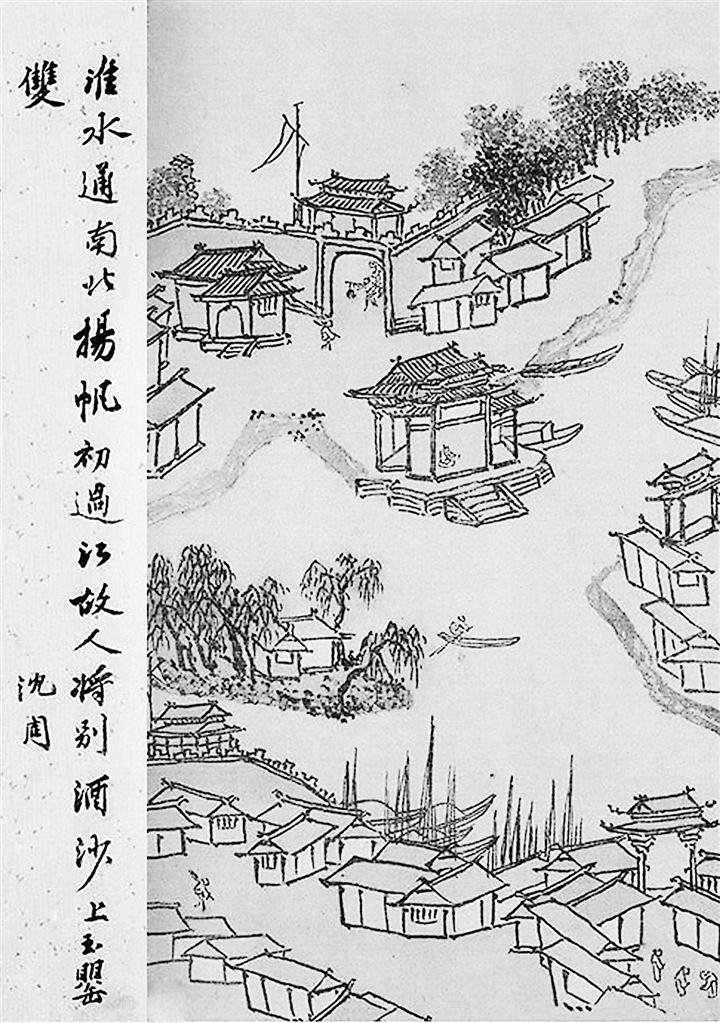 淮水通南北揚帆初過江故人將别酒沙上玉罌
雙
沈周